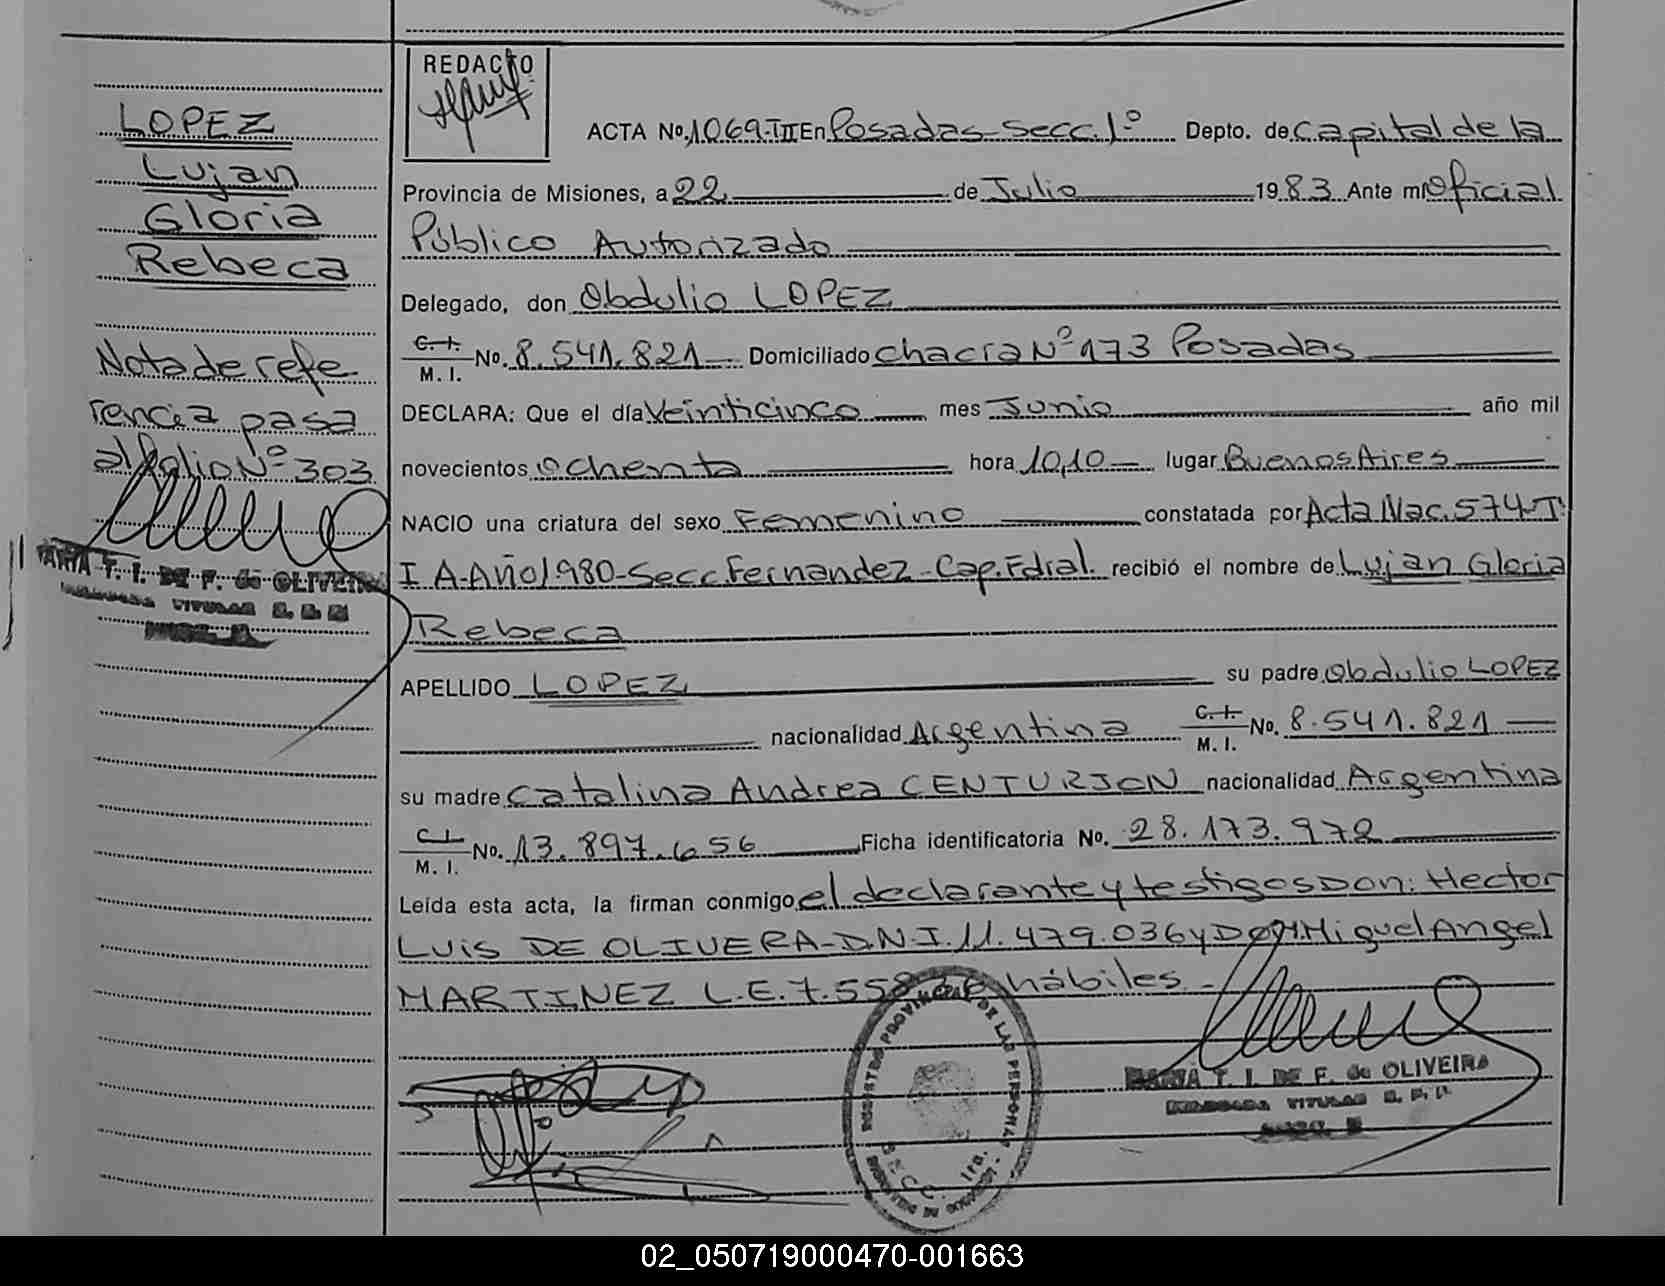 REDACTO
LOPEZ
Lujan
Gloria
Rebeca
Nota de refe
rencia pasa
al folio Nº 303
MARIA T. I. DE F. de OLIVEIRA
TITULAR
ACTA No. 1069-TII En Posadas-Secc.1º Depto. de Capital de la
Provincia de Misiones, a 22 de Julio 1983 Ante mi Oficial
Público Autorizado
Delegado, don Obdulio LOPEZ
C. I.
M. I. No. 8.541.821 Domiciliado Chacra Nº 173 Posadas
DECLARA: Que el día Veinticinco mes Junio año mil
novecientos ochenta hora 10,10 lugar Buenos Aires
NACIO una criatura del sexo Femenino constatada por Acta Nac. 574-T
I A-Año 1980-Secc. Fernandez-Cap. Fdral. recibió el nombre de Lujan Gloria
Rebeca
APELLIDO LOPEZ su padre Obdulio LOPEZ
nacionalidad Argentina C. I.
M. I. No. 8.541.821
su madre Catalina Andrea CENTURION nacionalidad Argentina
C. I.
M. I. No. 13.897.656 Ficha identificatoria No. 28.173.972
Leída esta acta, la firman conmigo el declarante y testigos Don: Hector
Luis DE OLIVERA-D.N.I. 11.479.036 y Don Miguel Angel
MARTINEZ L.E. 7.558 hábiles.-
REGISTRO PROVINCIAL DE LAS PERSONAS
SECC. 1ra.
MARIA T. I. DE F. de OLIVEIRA
TITULAR R. P. P.
02_050719000470-001663